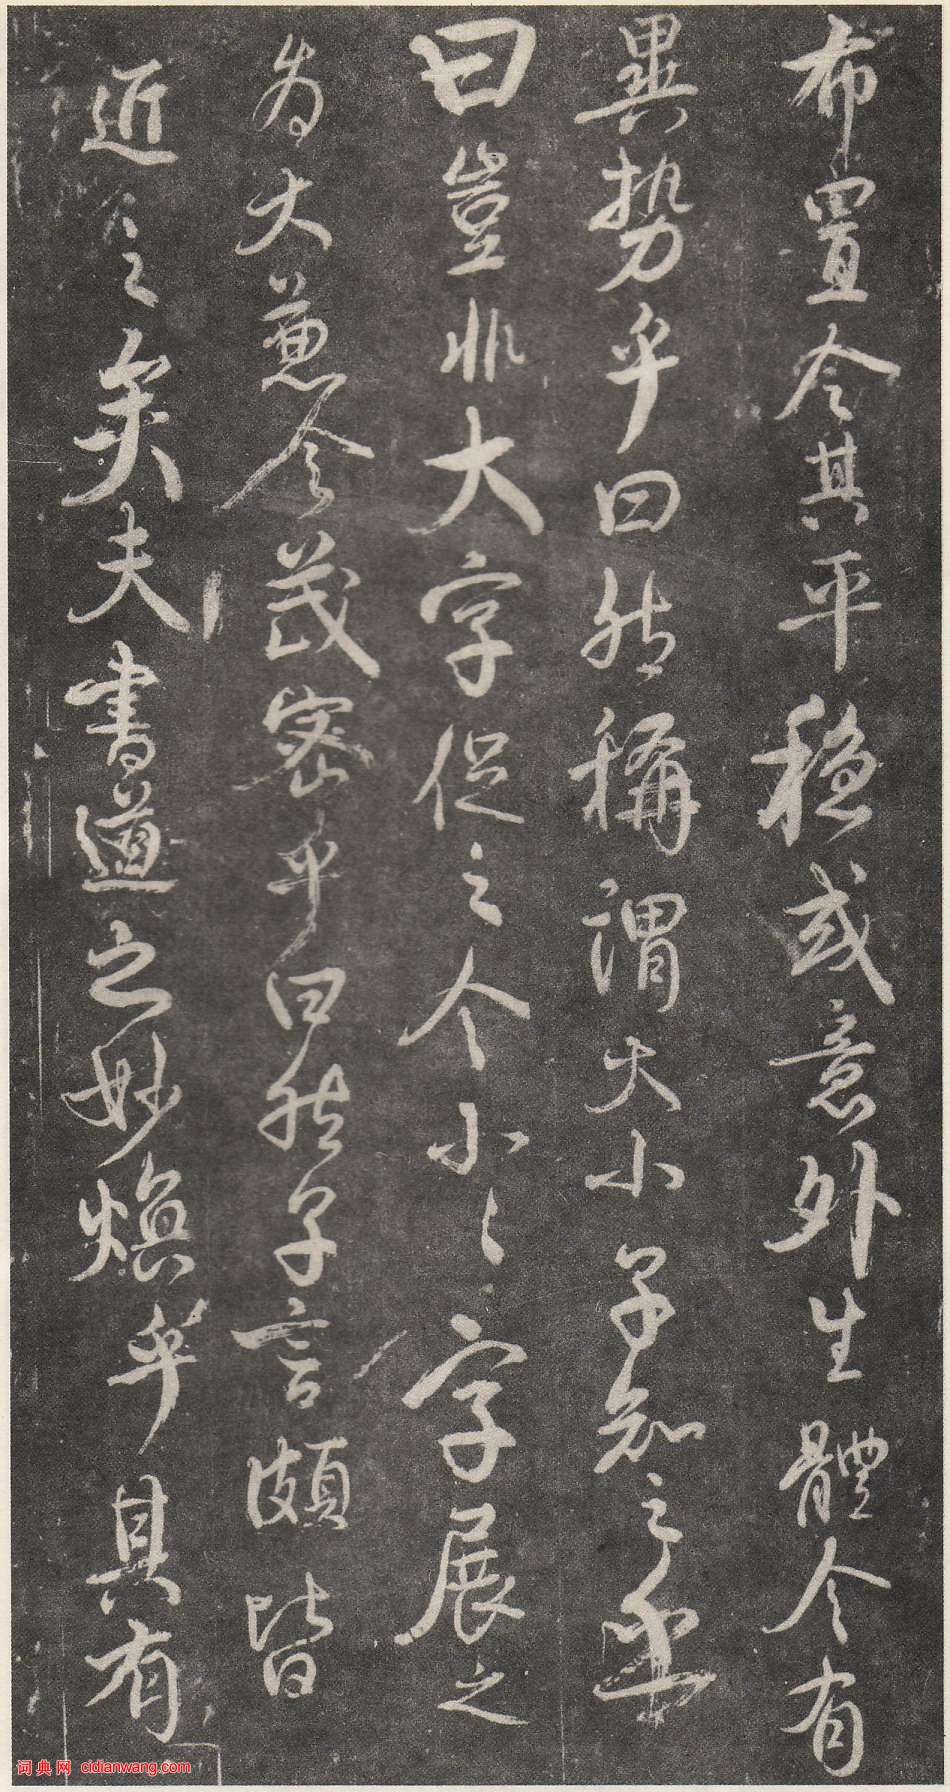 布置令其平穩或意外生體令有
異勢乎曰然稱謂大小子知之
曰豈非大字促之令小〻字展之
為大兼令茂密乎曰然子言頗皆
近之矣夫書道之妙煥乎具有
词典网 cidianwang.com